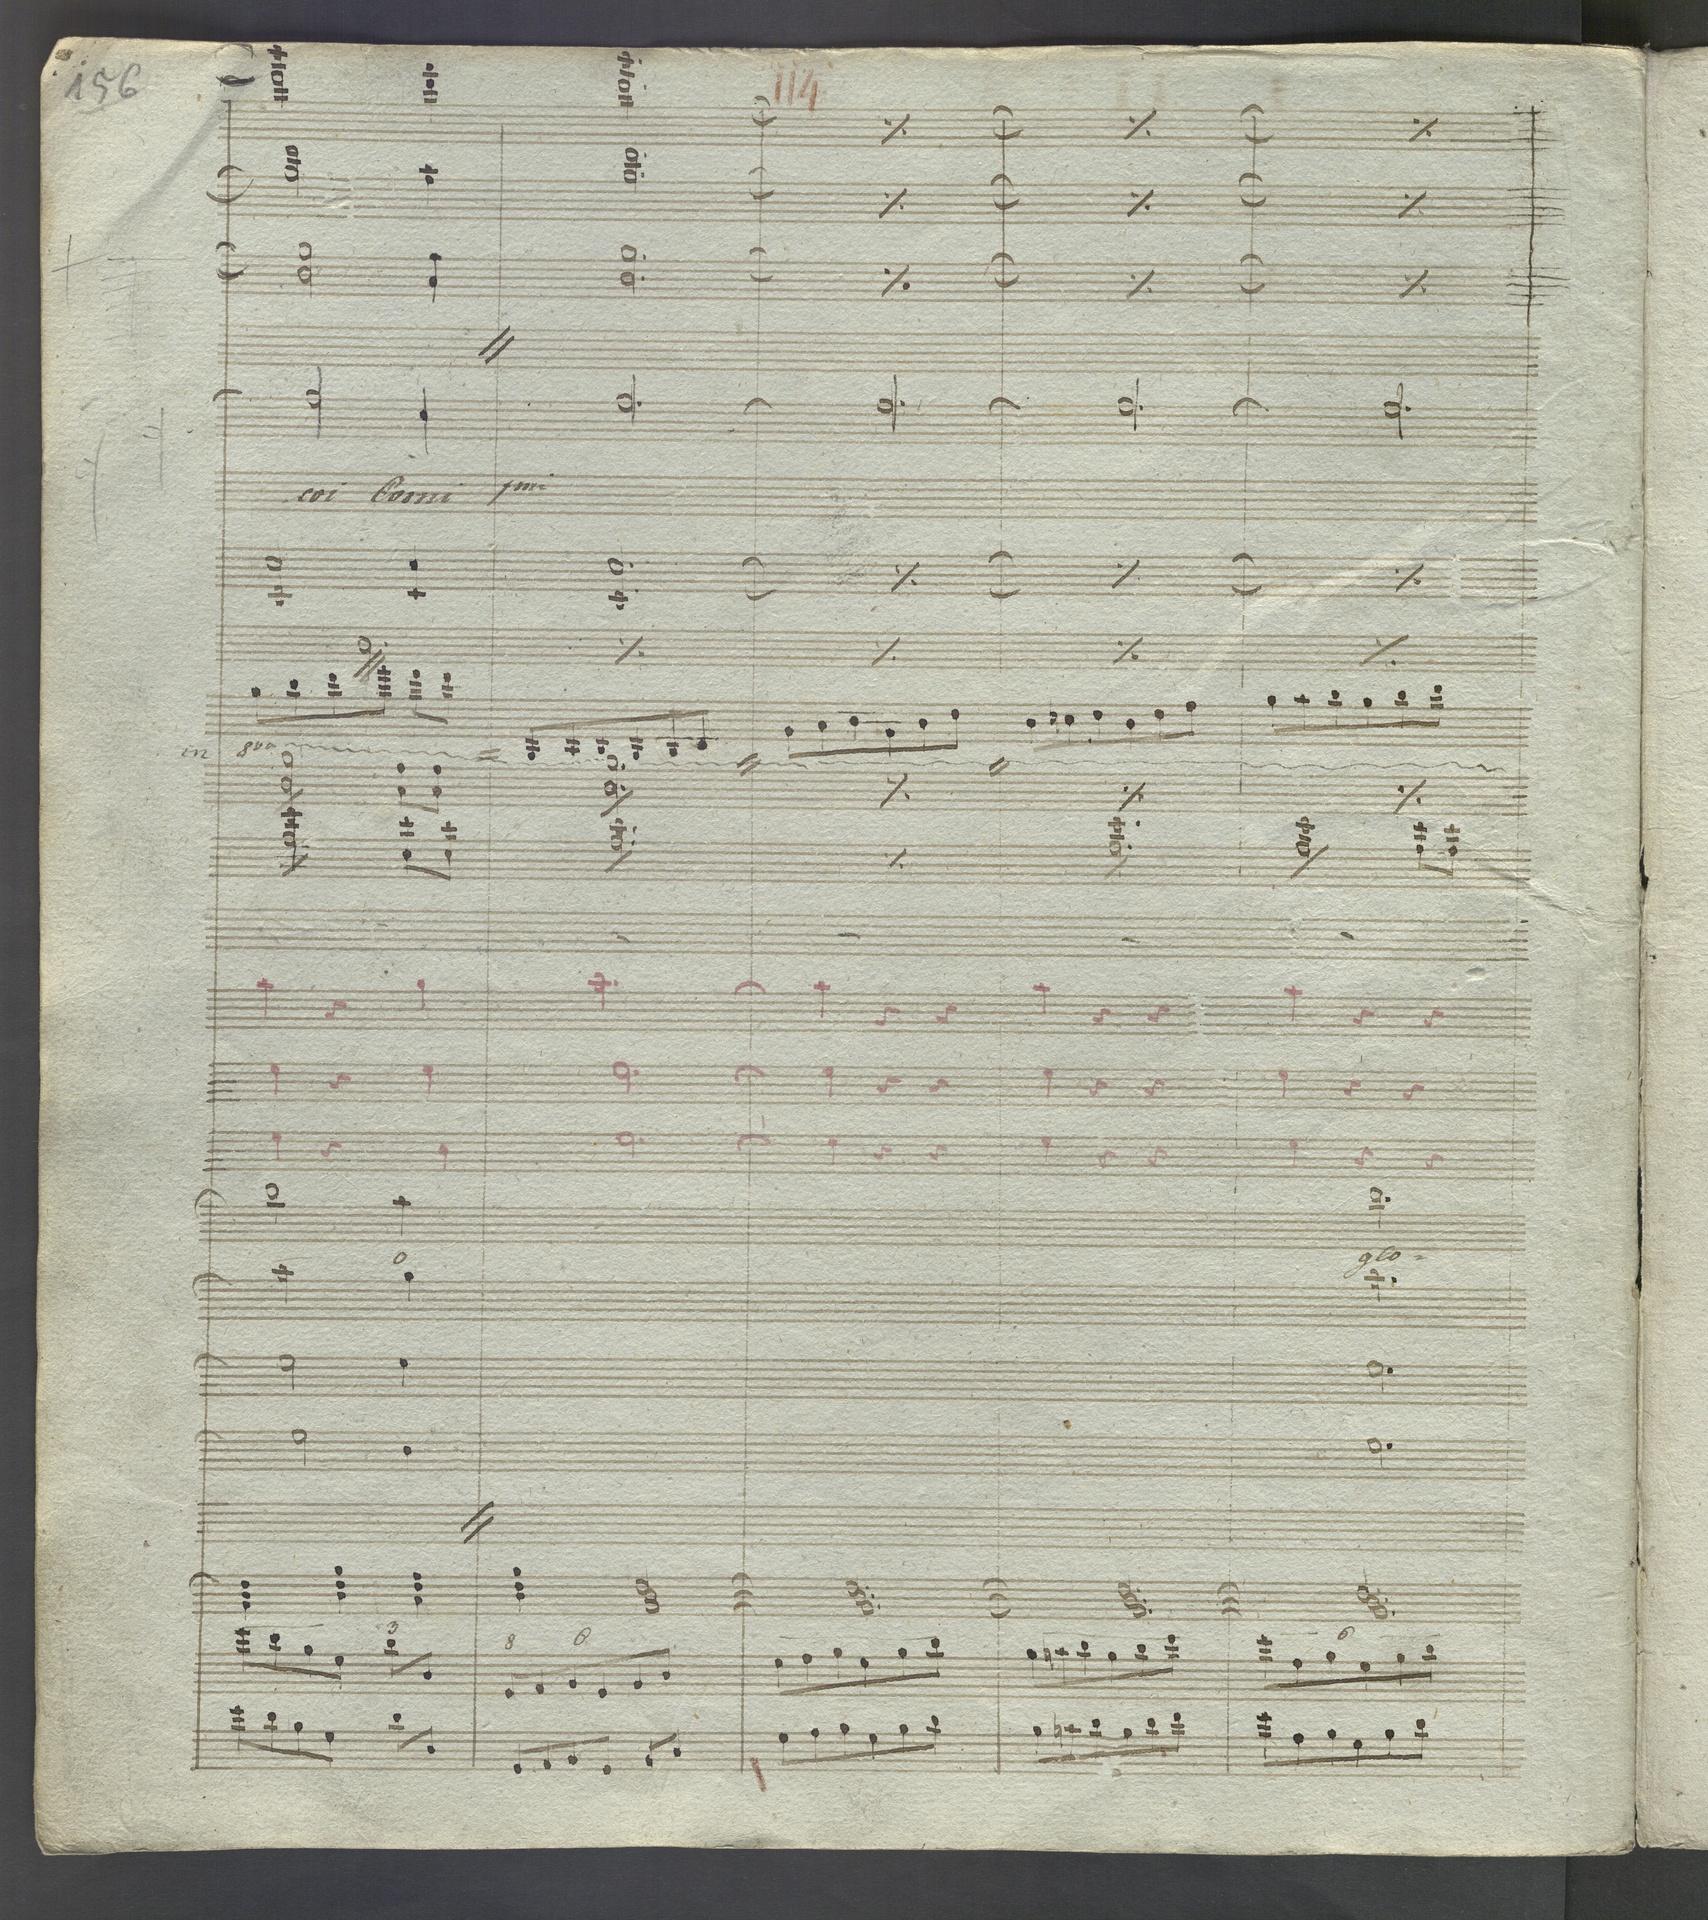 156
114
coi Corni pmi
in 8va
o
glo-
3
8 6
6